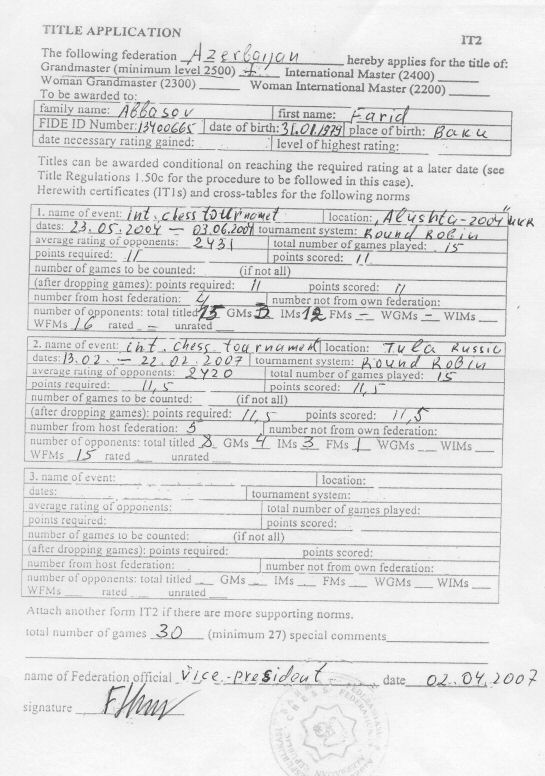 TITLE APPLICATION
IT2
The following federation Azerbaijan hereby applies for the title of:
Grandmaster (minimum level 2500) + International Master (2400)
Woman Grandmaster (2300) Woman International Master (2200)
To be awarded to:
family name: Abbasov first name: Farid
FIDE ID Number: 13400665 date of birth: 31.01.1979 place of birth: Baku
date necessary rating gained: level of highest rating:
Titles can be awarded conditional on reaching the required rating at a later date (see
Title Regulations 1.50c for the procedure to be followed in this case).
Herewith certificates (IT1s) and cross-tables for the following norms
1. name of event: int. chess tournamet location: "Alushta-2004"
dates: 23.05.2004 – 03.06.2004 tournament system: Round Robin
average rating of opponents: 2431 total number of games played: 15
points required: 11 points scored: 11
number of games to be counted: (if not all)
(after dropping games): points required: 11 points scored: 11
number from host federation: 4 number not from own federation:
number of opponents: total titled 15 GMs IMs 12 FMs – WGMs – WIMs
WFMs 16 rated – unrated
2. name of event: int. chess tournament location: Tula Russia
dates: 13.02. – 22.02.2007 tournament system: Round Robin
average rating of opponents: 2420 total number of games played: 15
points required: 11,5 points scored: 11,5
number of games to be counted: (if not all)
(after dropping games): points required: 11,5 points scored: 11,5
number from host federation: 5 number not from own federation:
number of opponents: total titled 8 GMs 4 IMs 3 FMs 1 WGMs WIMs
WFMs 15 rated unrated
3. name of event: location:
dates: tournament system:
average rating of opponents: total number of games played:
points required: points scored:
number of games to be counted: (if not all)
(after dropping games): points required: points scored:
number from host federation: number not from own federation:
number of opponents: total titled GMs IMs FMs WGMs WIMs
WFMs rated unrated
Attach another form IT2 if there are more supporting norms.
total number of games 30 (minimum 27) special comments
name of Federation official Vice-president date 02.04.2007
signature